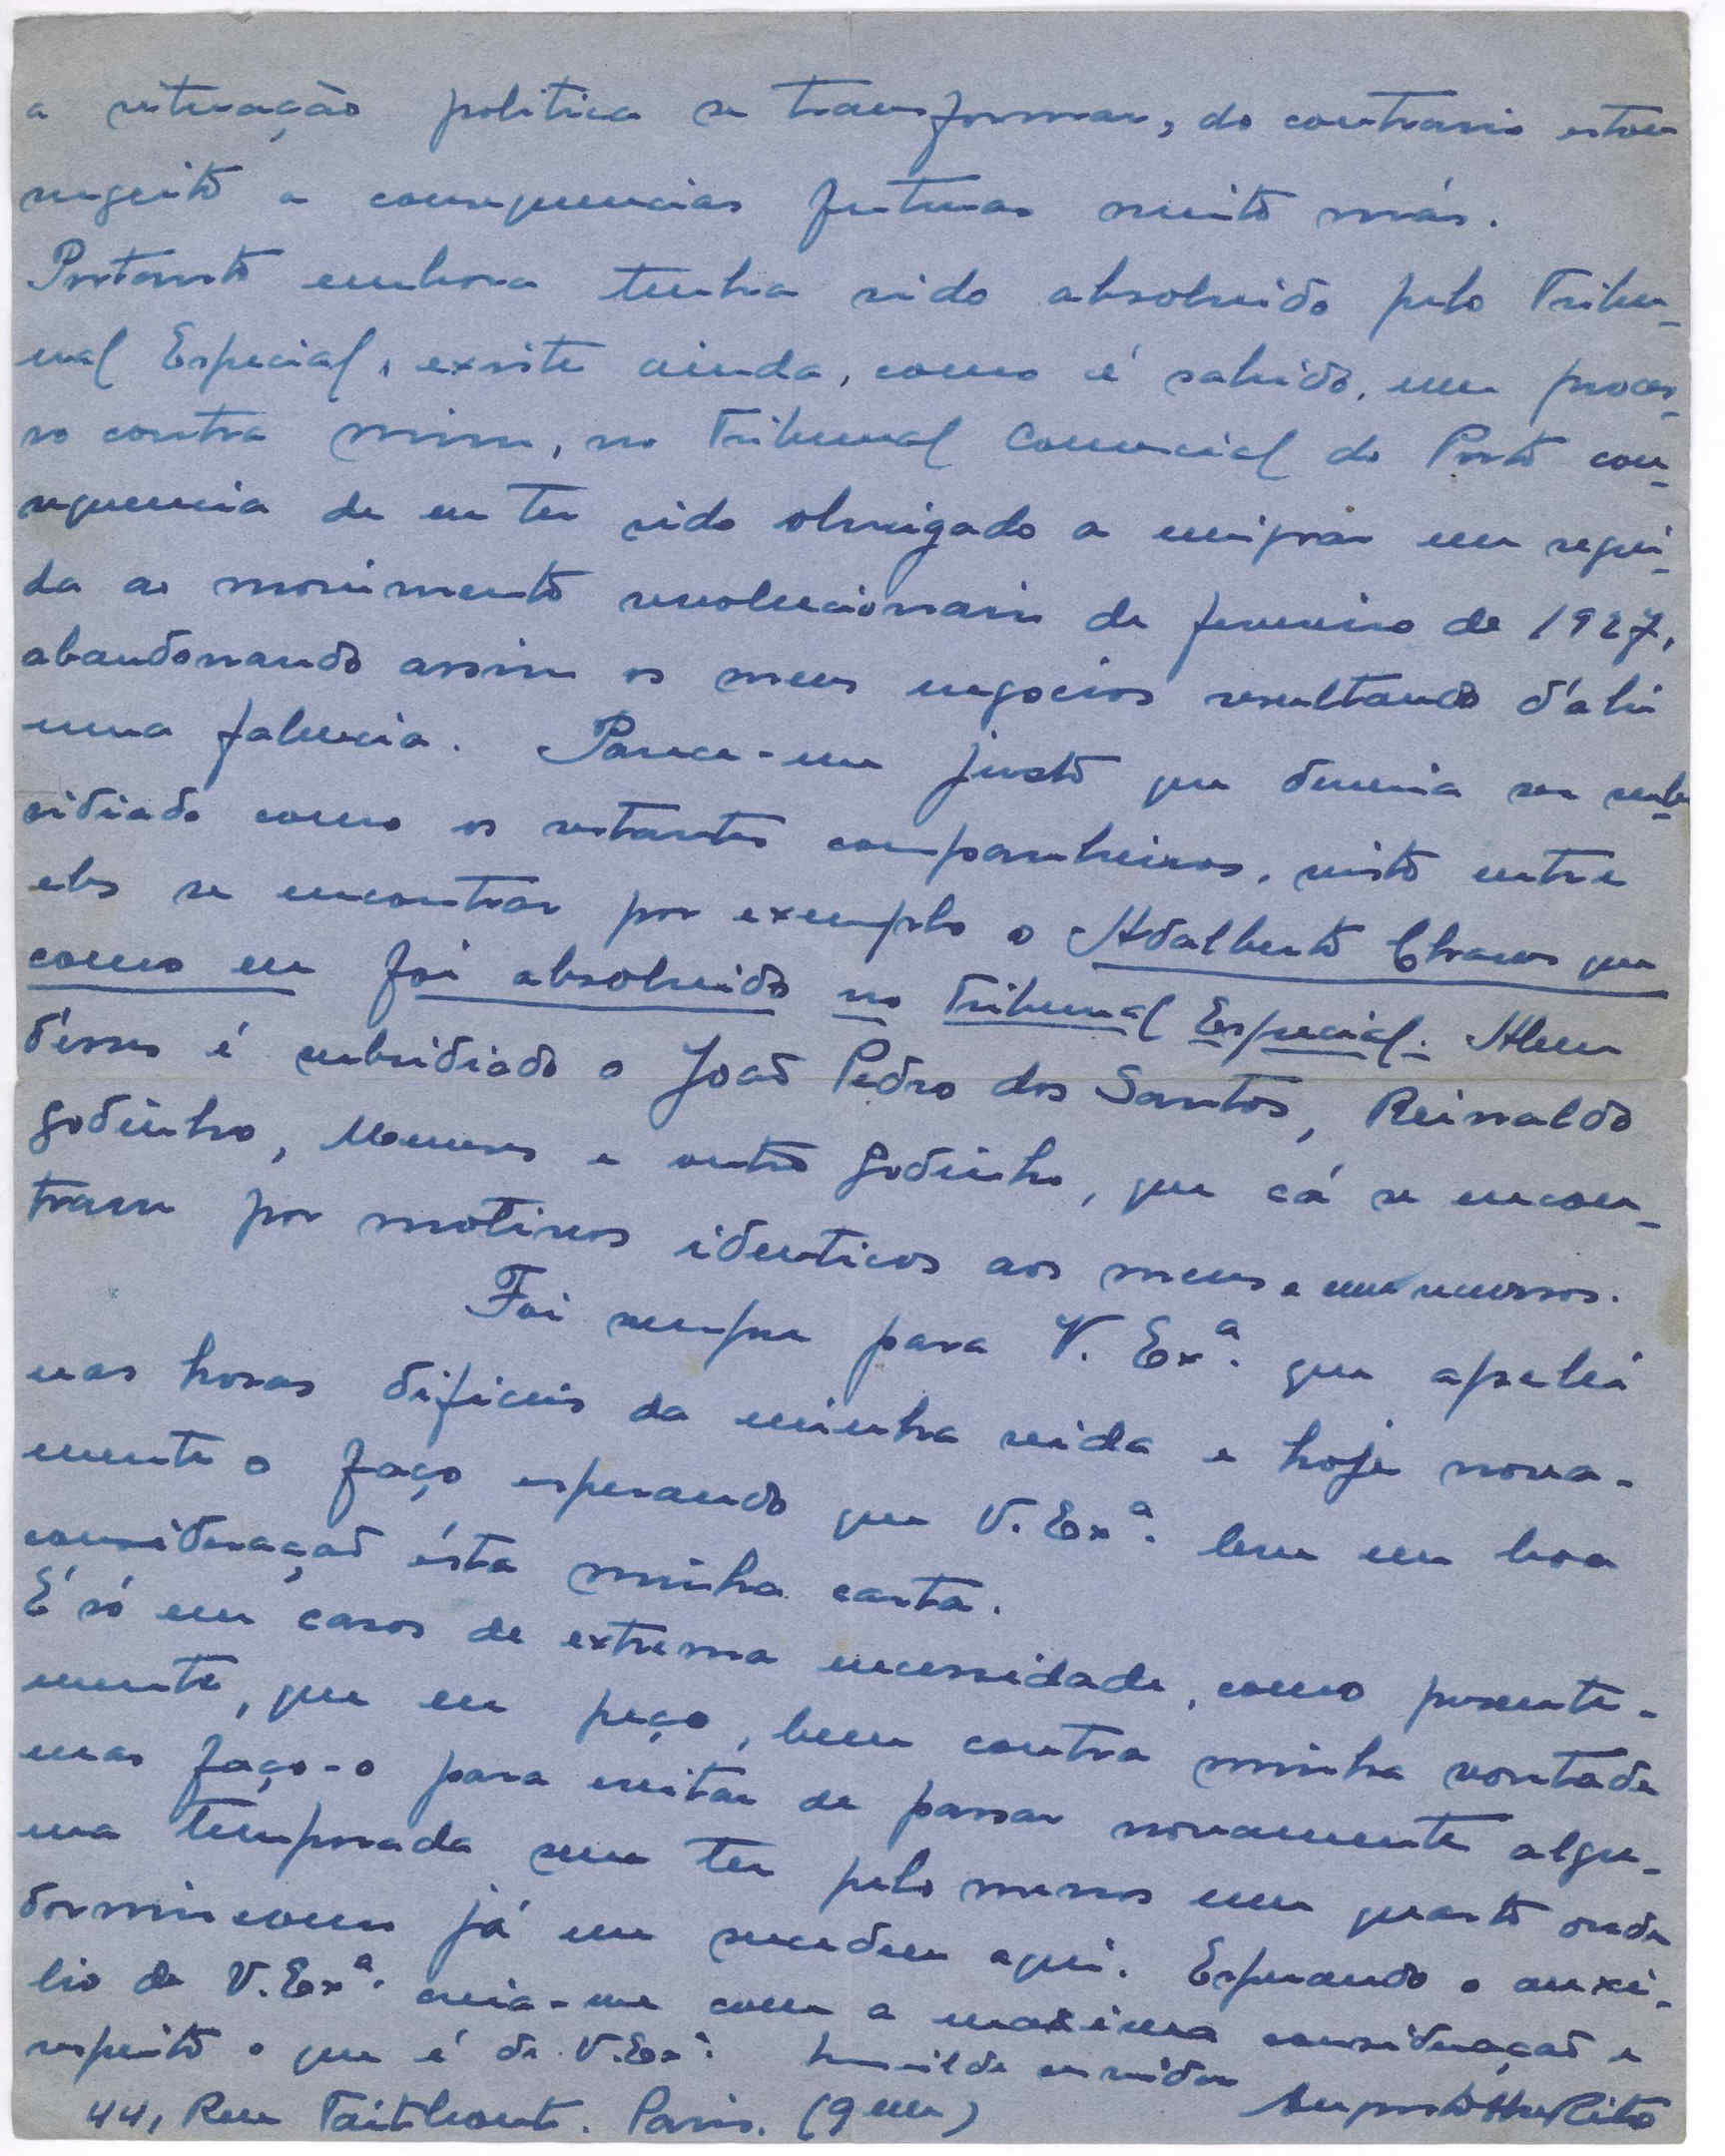 a situação politica se transformar, do contrario estou
sugeito a consequencias futuras muito más.
Portanto embora tenha sido absolvido pelo Tribu-
nal Especial, existe ainda, como é sabido, um proces-
so contra mim, no Tribunal Comercial do Porto con-
sequencia de eu ter sido obrigado a emigrar em segui-
da ao movimento revolucionario de fevereiro de 1927,
abandonando assim os meus negocios resultando d'ahi
uma falencia. Parece-me justo que deveria ser sub-
sidiado como os restantes companheiros, visto entre
eles se encontrar por exemplo o Adalberto Chaves que
como eu foi absolvido no Tribunal Especial. Alem
dêsses é subsidiado o João Pedro dos Santos, Reinaldo
Godinho, e outro Godinho, que cá se encon-
tram por motivos identicos aos meus e
Foi sempre para V. Exª. que apelei
nas horas dificeis da minha vida e hoje nova-
mente o faço esperando que V. Exª. leve em boa
consideração ésta minha carta.
É só em casos de extrema necessidade, como presente-
mente, que eu peço, bem contra minha vontade
mas faço-o para evitar de passar novamente algu-
ma temporada sem ter pelo menos um quarto onde
dormir como já me sucedeu aqui. Esperando o auxi-
lio de V. Exª. creia-me com a maxima consideração e
respeito o que é de V. Exª. humilde servidor
44, Rue Taitbout. Paris. (9em)